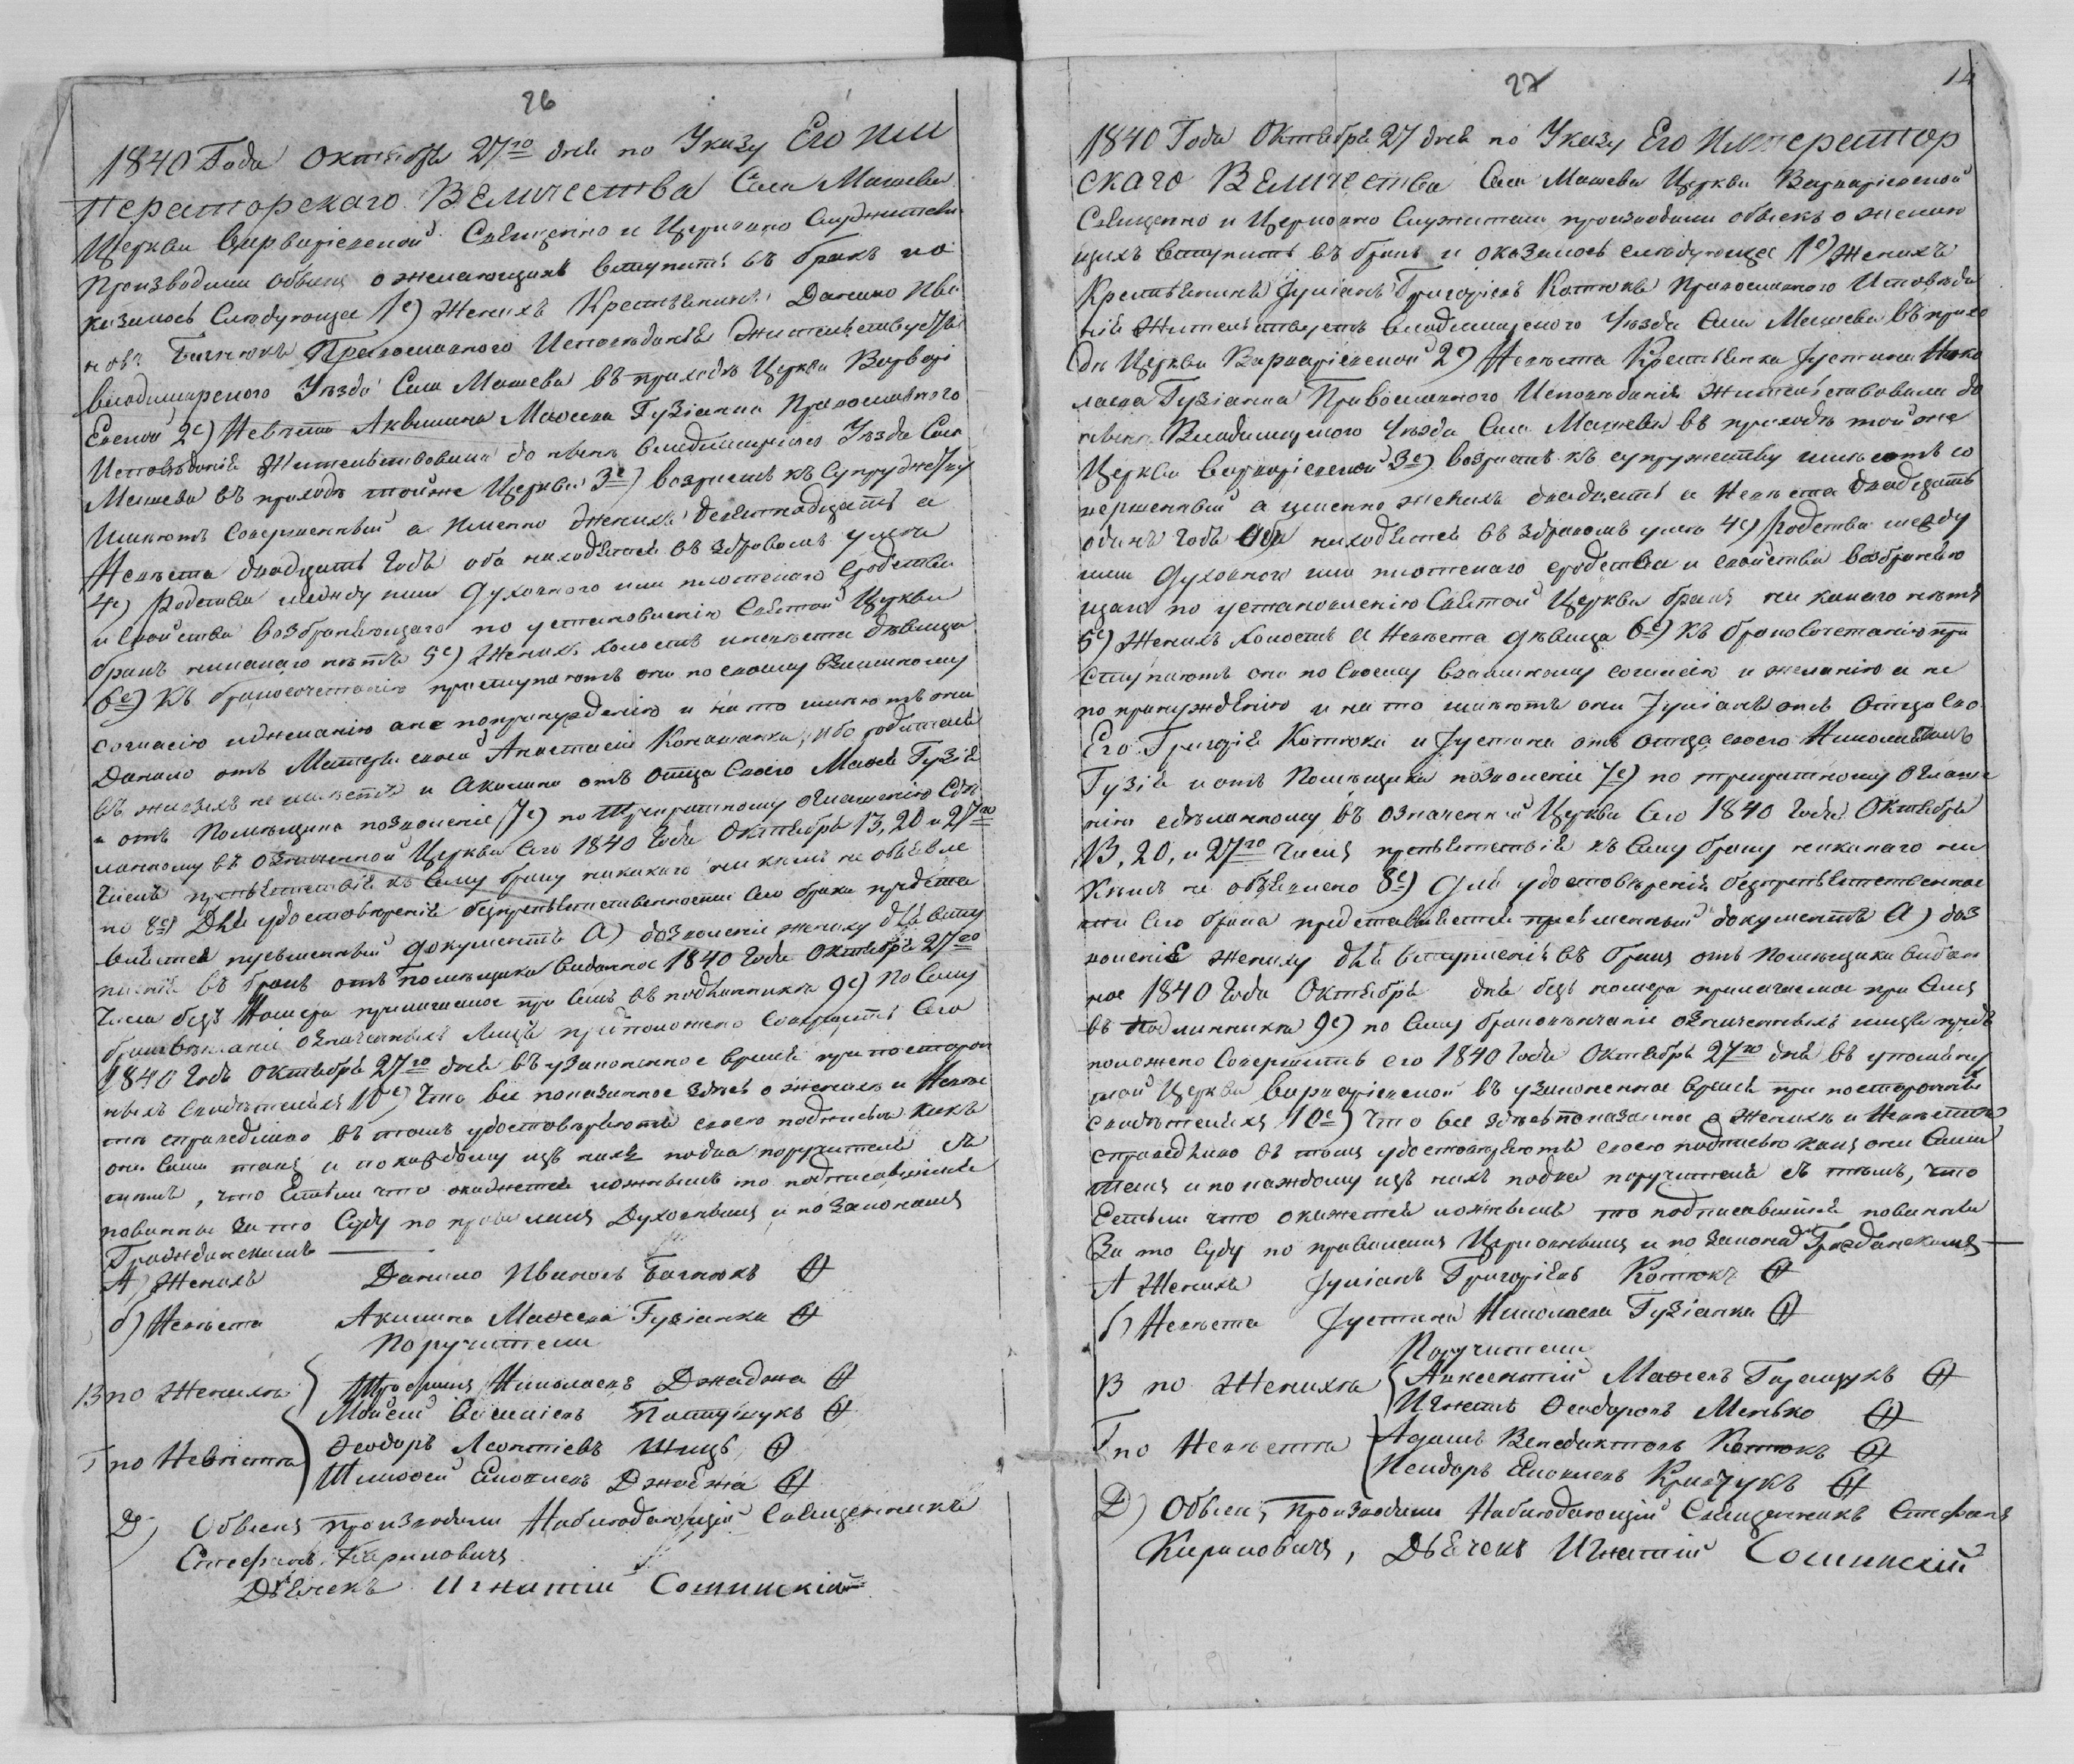 26
1840 Года Октября 27го дня по Указу Его Им
ператорскаго Величества Села Машева
Церкви Варваріевской Священно и Церковно Служители
Производили обыскъ о желающихъ вступить въ бракъ и о
казалось Следующее 1е) Женихъ Крестьянинъ Данило Ива
новъ Бачнюкъ Православного Исповѣданія жительствуетъ
Владимірского Уѣзда Села Машева въ приходѣ Церкви Варварі
Евской 2е) Невѣста Акилина Маѳеева Гузіанка Православного
Исповѣданія Жительствовала до нынѣ Владимірского Уѣзда Села
Машева въ приходѣ тойже Церкви 3е) возрастъ къ супружеству
Имѣютъ Совершенный а Именно Женихъ девятнадцать а
Невѣста двадцать Годъ оба находятся въ здравомъ умѣ
4е) Родства между ими Духовного или плотскаго сродства
и Свойства возбраняющаго по установленію Святой Церкви
бракъ никакаго нѣтъ 5е) Женихъ холостъ и невѣста дѣвица
6е) Къ бракосочетанію приступаютъ они по своему взаимному
согласію и желанію а не по принужденію и на то имѣютъ они
Данило отъ Матери своей Анастасіи ибо родителя
въ живыхъ не имѣетъ и Акилина отъ отца Своего Маѳея Гузія
и отъ Помѣщика позволеніе 7е) по троекратному оглашенію Сдѣ
ланному въ означенной Церкви Сего 1840 Года Октября 13, 20 и 27го
Числъ препятствія къ Сему браку никакого ни кѣмъ не объявле
но 8е) Для удостовѣренія безпрепятственности Сего брака предста
вляется письменный документъ А) дозволеніе жениху для всту
пленія въ бракъ отъ Помѣщика виданное 1840 Года Октября 27го
Числа безъ Номера прилагаемое при Семъ въ подлинникѣ 9е) По Сему
браковѣнчаніе означенныхъ Лицъ предположено Совершить Сего
1840 Годъ Октября 27го дня въ узаконенное время при посторон
нихъ свидѣтеляхъ 10е) Что все показанное здѣсь о женихѣ и Невѣс
тѣ справедливо въ томъ удостовѣряютъ своею подписью какъ
они Сами такъ и по каждому изъ нихъ по два поручителя съ
тѣмъ, что Естьли что окажется ложнымъ то подписавшіеся
повинны за то Суду по правиламъ Духовнымъ и по Законамъ
Гражданскимъ
А) Женихъ Данило Ивановъ Бачнюкъ
б) Невѣста Акилина Маѳеева Гузіанка
Поручители
В по Женихѣ Трофимъ Николаевъ Джаджа
Мойсей Василіевъ Пастушукъ
Г по Невѣстѣ Ѳеодоръ Леонтіевъ Шицъ
Тимоѳей Джабжа
Д) Обыскъ производили Наблюдающій Священникъ
Стефанъ Кириловичъ
Дьячекъ Игнатій Сошинскій
27
14
1840 Года Октября 27 дня по Указу Его Император
скаго Величества Села Машева Церкви Варваріевской
Священно и Церковно Служители производили обыскъ о желаю
щихъ вступить въ бракъ и оказалось следующее 1е) Женихъ
Крестьянинъ Іуліанъ Григоріевъ Котюкъ Православного Исповѣда
нія Жительствуетъ Владимірского Уѣзда Села Машева въ прихо
дѣ Церкви Варваріевской 2е) Невѣста Крестьянка Іустина Нико
лаева Гузіанка Православного Исповѣданія Жительствовала до
нынѣ Владимірского Уѣзда Села Машева въ приходѣ той же
Церкви Варваріевской 3е) возрастъ къ супружеству имѣютъ со
вершенный а именно женихъ двадцать и Невѣста двадцать
одинъ Годъ оба находятся въ здравомъ умѣ 4е) Родства между
ими Духовного или плотскаго сродства и свойства возбраняю
щаго по установленію Святой Церкви бракъ ни какаго нѣтъ
5е) Женихъ холостъ а Невѣста дѣвица 6е) Къ бракосочетанію при
ступаютъ они по Своему взаимному согласію и желанію а не
по принужденію и на то имѣютъ они Іуліанъ отъ Отца Сво
Его Григорія Котюка и Іустина отъ отца своего Николая
Гузія и отъ Помѣщика позволеніе 7е) по троекратному оглаше
нію сдѣланному въ означенной Церкви Сего 1840 Года Октября
13, 20, и 27го Числъ препятствія къ Сему браку никакаго ни
Кѣмъ не объявлено 8е) Для удостовѣренія безпрепятственнос
ти Сего брака представляется письменный документъ А) доз
воленіе жениху для вступленія въ бракъ отъ Помѣщика видан
ное 1840 Года Октября дня безъ номера прилагаемое при Семъ
въ Подлинникѣ 9е) по Сему браковѣнчаніе означенныхъ лицъ пред
положено Совершить сего 1840 Года Октября 27го дня въ упомяну
той Церкви Варваріевской въ узаконенное время при постороннихъ
свидѣтеляхъ 10е) Что все здѣсь показанное о Женихѣ и Невѣстѣ
справедливо въ томъ удостовѣряютъ своею подписью какъ они Сами
такъ и по каждому изъ нихъ по два поручителя съ тѣмъ, что
Естьли что окажется ложнымъ то подписавшіеся повинны
За то Суду по правиламъ Церковнымъ и по Законамъ Гражданскимъ
А Женихъ Іуліанъ Григоріевъ Котюкъ
б) Невѣста Іустина Николаева Гузіанка
Поручители
В по Женихѣ Авксентій Маѳеевъ Геращукъ
Игнатъ Ѳеодоровъ Менько
Г по Невѣстѣ Адамъ Венедиктовъ Котюкъ
Исидоръ Кравчукъ
Д) Обыскъ Производили Наблюдающій Священникъ Стефанъ
Кириловичъ, Дьячекъ Игнатій Сошинскій